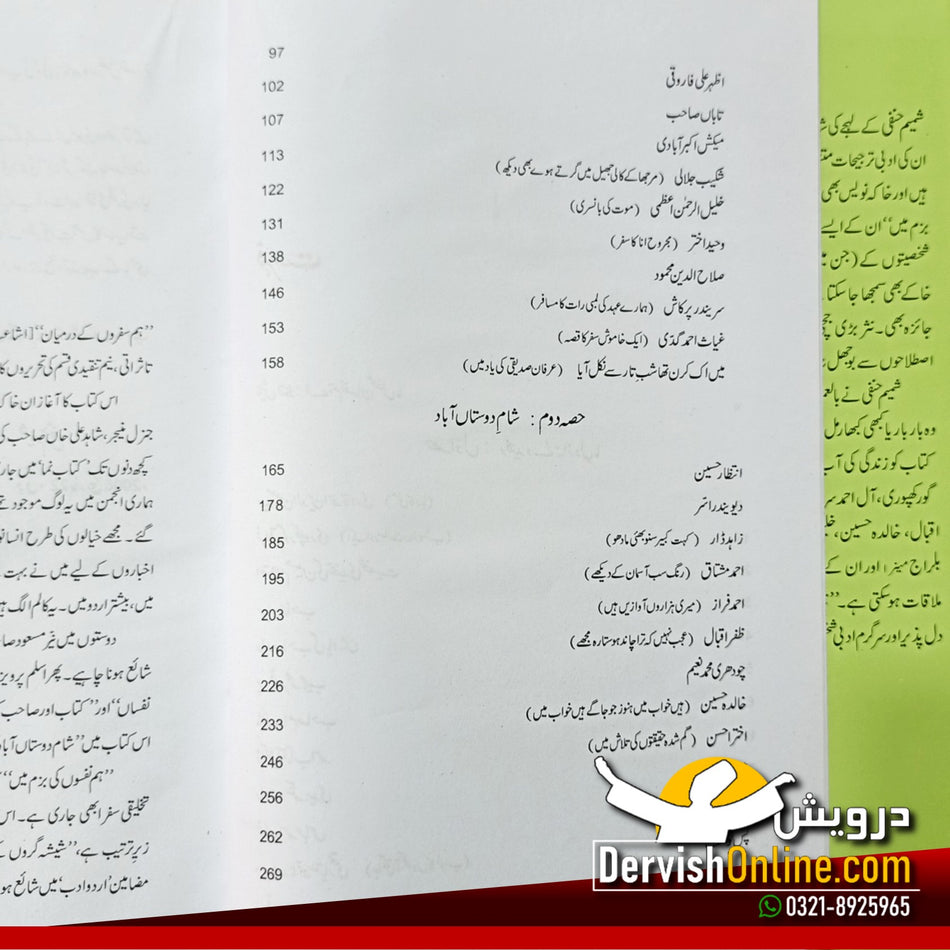 97
اظہر علی فاروقی 102
تاباں صاحب 107
میکش اکبر آبادی 113
شکیب جلالی (مرجھا کے کالی جھیل میں گرتے ہوے بھی دیکھ) 122
خلیل الرحمٰن اعظمی (موت کی بانسری) 131
وحید اختر (مجروح انا کا سفر) 138
صلاح الدین محمود 146
سریندر پرکاش (ہمارے عہد کی لمبی رات کا مسافر) 153
غیاث احمد گدی (ایک خاموش سفر کا قصہ) 158
میں اک کرن تھا شبِ تار سے نکل آیا (عرفان صدیقی کی یاد میں)
حصہ دوم: شامِ دوستاں آباد
انتظار حسین 165
دیویندر اسر 178
زاہد ڈار (کہت کبیر سنو بھئی مادھو) 185
احمد مشتاق (رنگ سب آسمان کے دیکھے) 195
احمد فراز (میری ہزاروں آوازیں ہیں) 203
ظفر اقبال (عجب نہیں کہ ترا چاند ہو ستارہ مجھے) 216
چودھری محمد نعیم 226
خالدہ حسین (ہیں خواب میں ہنوز جو جاگے ہیں خواب میں) 233
اختر احسن (گم شدہ حقیقتوں کی تلاش میں) 246
256
262
269
شمیم حنفی کے لہجے کی
ان کی ادبی ترجیحات
ہیں اور خاکہ نویس بھی
بزم میں“ ان کے ایسے
شخصیتوں کے (جن
خاکے بھی سمجھا جا سکتا
جائزہ بھی۔ نثر بڑی
اصطلاحوں سے بوجھل
شمیم حنفی نے
وہ بار بار یا کبھی کبھار
کتاب کو زندگی کی
گورکھپوری، آل احمد
اقبال، خالدہ حسین،
بلراج مینرا اور ان کے
ملاقات ہو سکتی ہے۔“
دل پذیر اور سرگرم ادبی
”ہم سفروں کے درمیان“
تاثراتی، نیم تنقیدی قسم کی تحریروں
اس کتاب کا آغاز ان
جنرل منیجر، شاہد علی خاں صاحب کی
کچھ دنوں تک ’کتاب نما‘ میں
ہماری انجمن میں یہ لوگ موجود
گئے۔ مجھے خیالوں کی طرح
اخباروں کے لیے میں نے بہت
میں، بیشتر اردو میں۔ یہ کالم الگ
دوستوں میں نیّر مسعود
شائع ہونا چاہیے۔ پھر اسلم پرویز
نفساں“ اور ”کتاب اور صاحب
اس کتاب میں ”شام دوستاں آباد
”ہم نفسوں کی بزم میں“
تخلیقی سفر ابھی جاری ہے۔ اس
زیر ترتیب ہے، ”شیشہ گروں کے
مضامین ’اردو ادب‘ میں شائع
درویش
DervishOnline.com
0321-8925965